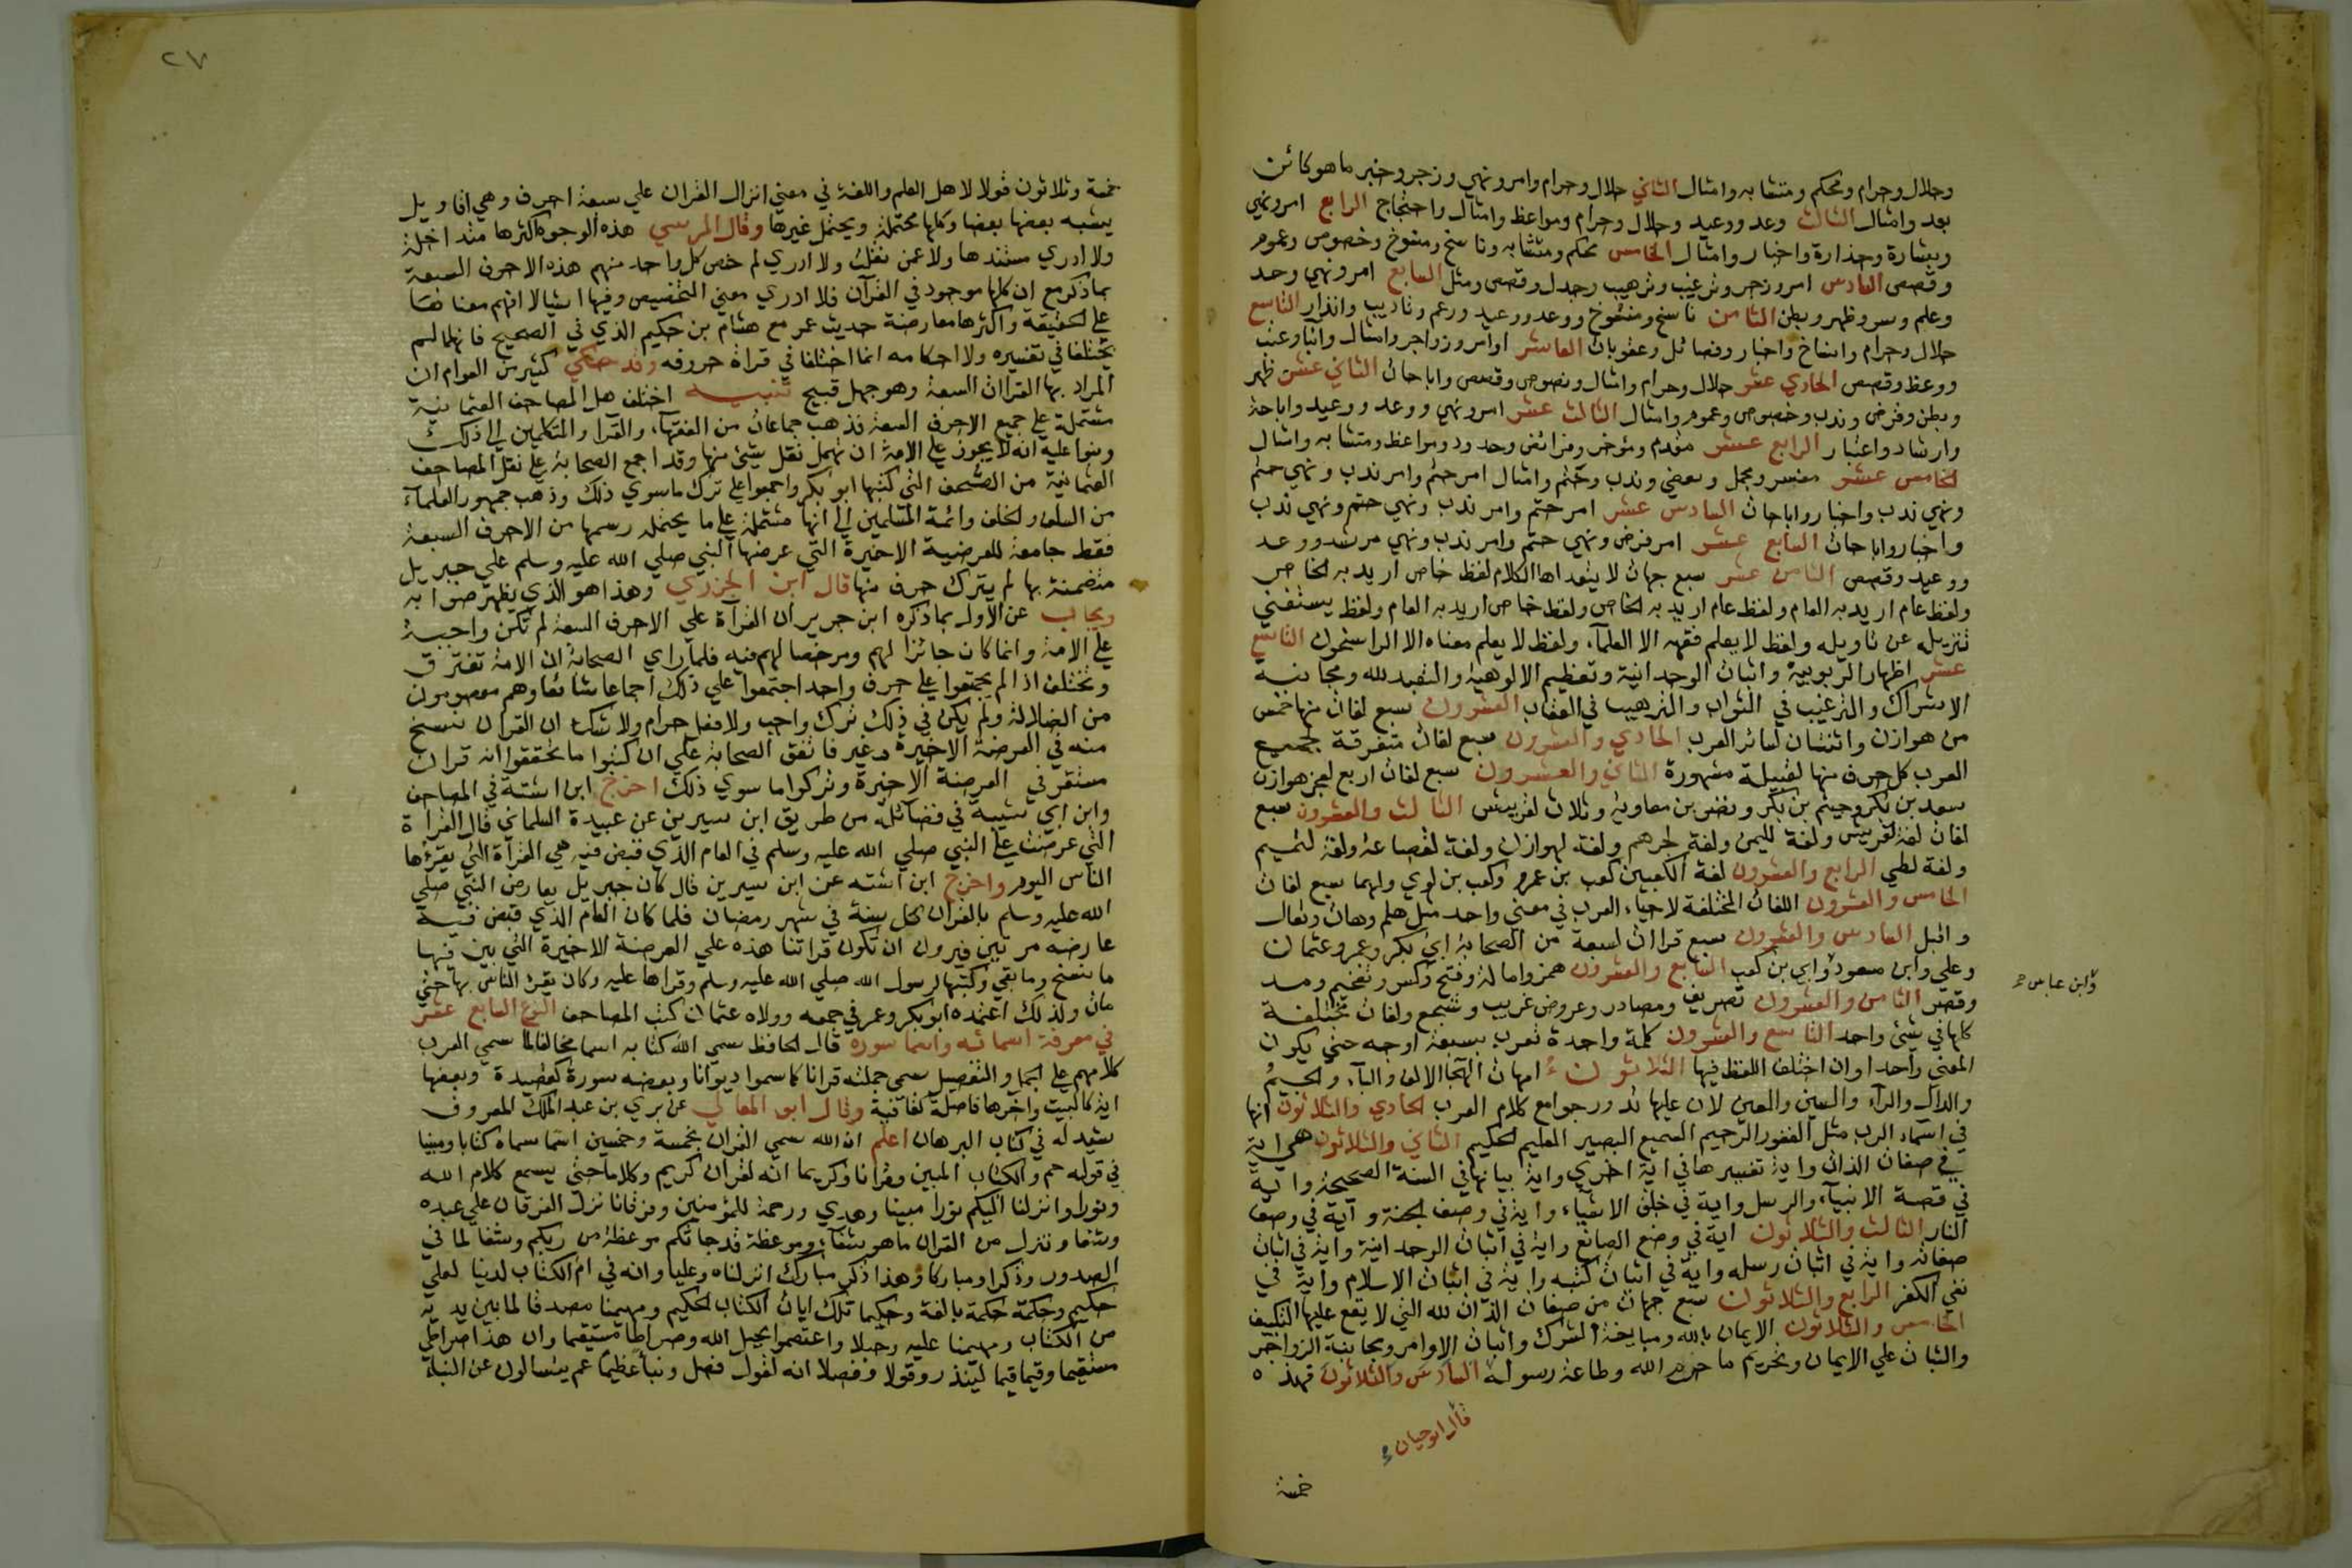 وحلال وحرام ومحكم ومتشابه وامثال الثاني حلال وحرام وامر ونهي وزجر وخبر ما هو كائن
بعد وامثال الثالث وعد ووعيد وحلال وحرام ومواعظ وامثال واحتجاج الرابع امر ونهي
وبشارة وحذارة واخبار وامثال الخامس محكم ومتشابه وناسخ ومنسوخ وخصوص وعموم
وقصص السادس امر وزجر وترغيب وترهيب وجدل وقصص ومثل السابع امر ونهي وحد
وعلم وسر وظهر وبطن الثامن ناسخ ومنسوخ ووعد ووعيد ورغم وتاديب وانذار التاسع
حلال وحرام وافتتاح واخبار وفضائل وعقوبات العاشر اوامر وزواجر وامثال وانبا وعتب
ووعظ وقصص الحادي عشر حلال وحرام وامثال ونصوص وقصص واباحات الثاني عشر ظهر
وبطن وفرض وندب وخصوص وعموم وامثال الثالث عشر امر ونهي ووعد ووعيد واباحة
وارشاد واعتبار الرابع عشر مقدم ومؤخر وفرائض وحدود ومواعظ ومتشابه وامثال
الخامس عشر مفسر ومجمل ومقضي وندب وحتم وامثال امر حتم وامر ندب ونهي حتم
ونهي ندب واخبار واباحات السادس عشر امر حتم وامر ندب ونهي حتم ونهي ندب
واخبار واباحات السابع عشر امر فرض ونهي حتم وامر ندب ونهي مرشد ووعد
ووعيد وقصص الثامن عشر سبع جهات لا يتعداها الكلام لفظ خاص اريد به الخاص
ولفظ عام اريد به العام ولفظ عام اريد به الخاص ولفظ خاص اريد به العام ولفظ يستغني
تنزيله عن تاويله ولفظ لا يعلم فقهه الا العلمآء ولفظ لا يعلم معناه الا الراسخون التاسع
عشر اظهار الربوبية واثبات الوحدانية وتعظيم الالوهية والتعبد لله ومجانبة
الاشراك والترغيب في الثواب والترهيب في العقاب العشرون سبع لغات منها خمس
من هوازن واثنتان لسائر العرب الحادي والعشرون سبع لغات متفرقة لجميع
العرب كل حرف منها لقبيلة مشهورة الثاني والعشرون سبع لغات اربع لعجز هوازن
سعد بن بكر وجيثم بن بكر ونضر بن معاوية وثلاث لقريش الثالث والعشرون سبع
لغات لغة لقريش ولغة لليمن ولغة لجرهم ولغة لهوازن ولغة لقضاعة ولغة لتميم
ولغة لطي الرابع والعشرون لغة الكعبين كعب بن عمرو وكعب بن لوي ولهما سبع لغات
الخامس والعشرون اللغات المختلفة لاحياء العرب في معني واحد مثل هلم وهات وتعال
واقبل السادس والعشرون سبع قراات لسبعة من الصحابة ابي بكر وعمر وعثمان
وعلي وابن مسعود وابي بن كعب السابع والعشرون همز وامالة وفتح وكسر وتفخيم ومد
وابن عباس
وقصر الثامن والعشرون تصريف ومصادر وعروض غريب وشجع ولغات مختلفة
كلها في شئ واحد التاسع والعشرون كلمة واحدة تعرب بسبعة اوجه حتي يكون
المعني واحدا وان اختلف اللفظ فيها الثلاثون امهات الهجا الالف والبآء والجيم
والدال والرآء والسين والعين لان عليها تدور جوامع كلام العرب الحادي والثلاثون انها
في اسمآء الرب مثل الغفور الرحيم السميع البصير العليم الحكيم الثاني والثلاثون هي اية
في صفات الذات واية تفسيرها في اية اخري واية بيانها في السنة الصحيحة واية
في قصة الانبيآء والرسل واية في خلق الاشياء واية في وصف الجنة وآية في وصف
النار الثالث والثلاثون اية في وضع الصانع واية في اثبات الوحدانية واية في اثبات
صفاته واية في اثبات رسله واية في اثبات كتبه واية في اثبات الاسلام واية في
نفي الكفر الرابع والثلاثون سبع جهات من صفات الذات لله التي لا يقع عليها التكييف
الخامس والثلاثون الايمان بالله ومباينة الشرك واثبات الاوامر ومجانبة الزواجر
والثبات علي الايمان وتحريم ما حرم الله وطاعة رسوله السادس والثلاثون فهذه
قال ابو حيان
خمسة
٢٧
خمسة وثلاثون قولا لاهل العلم واللغة في معني انزال القران علي سبعة احرف وهي اقاويل
يشبه بعضها بعضا وكلها محتملة ويحتمل غيرها وقال المرسي هذه الوجوه اكثرها متداخلة
ولا ادري مستندها ولا عمن نقلت ولا ادري لم خص كل واحد منهم هذه الاحرف السبعة
بما ذكر مع ان كلها موجود في القرآن فلا ادري معني التخصيص وفيها اشيا لا افهم معناها
علي الحقيقة واكثرها معارضة حديث عمر مع هشام بن حكيم الذي في الصحيح فانهما لم
يختلفا في تفسيره ولا احكامه انما اختلفا في قراة حروفه وقد حكي كثير من العوام ان
المراد بها القراات السبعة وهو جهل قبيح تنبيه اختلف هل المصاحف العثمانية
مشتملة علي جميع الاحرف السبعة فذهب جماعات من الفقهآء والقرا والمتكلمين الي ذلك
وبنوا عليه انه لا يجوز علي الامة ان تهمل نقل شئ منها وقد اجمع الصحابة علي نقل المصاحف
العثمانية من الصحف التي كتبها ابو بكر واجمعوا علي ترك ما سوي ذلك وذهب جمهور العلمآء
من السلف والخلف وائمة المسلمين الي انها مشتملة علي ما يحتمله رسمها من الاحرف السبعة
فقط جامعة للعرضية الاخيرة التي عرضها النبي صلي الله عليه وسلم علي جبريل
متضمنة بها لم يترك حرف منها قال ابن الجزري وهذا هو الذي يظهر صوابه
ويجاب عن الاول بما ذكره ابن جرير ان القرآة علي الاحرف السبعة لم تكن واجبة
علي الامة وانما كان جائزا لهم ومرخصا لهم فيه فلما راي الصحابة ان الامة تفترق
وتختلف اذا لم يجتمعوا علي حرف واحد اجتمعوا علي ذلك اجماعا شائعا وهم معصومون
من الضلالة ولم يكن في ذلك ترك واجب ولا فعل حرام ولا شك ان القران نسخ
منه في العرضة الاخيرة وغير فاتفق الصحابة علي ان كتبوا ما تحققوا انه قران
مستقر في العرضة الاخيرة وتركوا ما سوي ذلك اخرج ابن اشتة في المصاحف
وابن ابي شيبة في فضائله من طريق ابن سيرين عن عبيدة السلماني قال القرآة
التي عرضت علي النبي صلي الله عليه وسلم في العام الذي قبض فيه هي القرآة التي يقرؤها
الناس اليوم واخرج ابن اشته عن ابن سيرين قال كان جبريل يعارض النبي صلي
الله عليه وسلم بالقران كل سنة في شهر رمضان فلما كان العام الذي قبض فيه
عارضه مرتين فيرون ان تكون قراتنا هذه علي العرضة الاخيرة التي بين فيها
ما نسخ وما بقي وكتبها لرسول الله صلي الله عليه وسلم وقراها عليه وكان يقرئ الناس بها حتي
مات ولذلك اعتمده ابو بكر وعمر في جمعه وولاه عثمان كتب المصاحف النوع السابع عشر
في معرفة اسمائه واسما سوره قال الحافظ سمي الله كتابه اسما مخالفا لما سمي العرب
كلامهم علي الجمل والتفصيل سمي جملته قرانا كما سموا ديوانا وبعضه سورة كقصيدة وبعضها
اية كالبيت واخرها فاصلة كقافية وقال ابو المعالي عزيزي بن عبد الملك المعروف
بشيدله في كتاب البرهان اعلم ان الله سمي القران بخمسة وخمسين اسما سماه كتابا ومبينا
في قوله حم والكتاب المبين وقرانا وكريما انه لقران كريم وكلاما حتي يسمع كلام الله
ونورا وانزلنا اليكم نورا مبينا وهدي ورحمة للمؤمنين وفرقانا نزل الفرقان علي عبده
وشفا وننزل من القران ما هو شفآء وموعظة قد جائكم موعظة من ربكم وشفا لما في
الصدور وذكرا ومباركا وهذا ذكر مبارك انزلناه وعليا وانه في ام الكتاب لدينا لعلي
حكيم وحكمة حكمة بالغة وحكيما تلك ايات الكتاب الحكيم ومهيمنا مصدقا لما بين يديه
من الكتاب ومهيمنا عليه وحبلا واعتصموا بحبل الله وصراطا مستقيما وان هذا صراطي
مستقيما وقيما قيما لينذر وقولا وفصلا انه لقول فصل ونبأ عظيما عم يتسالون عن النبأ